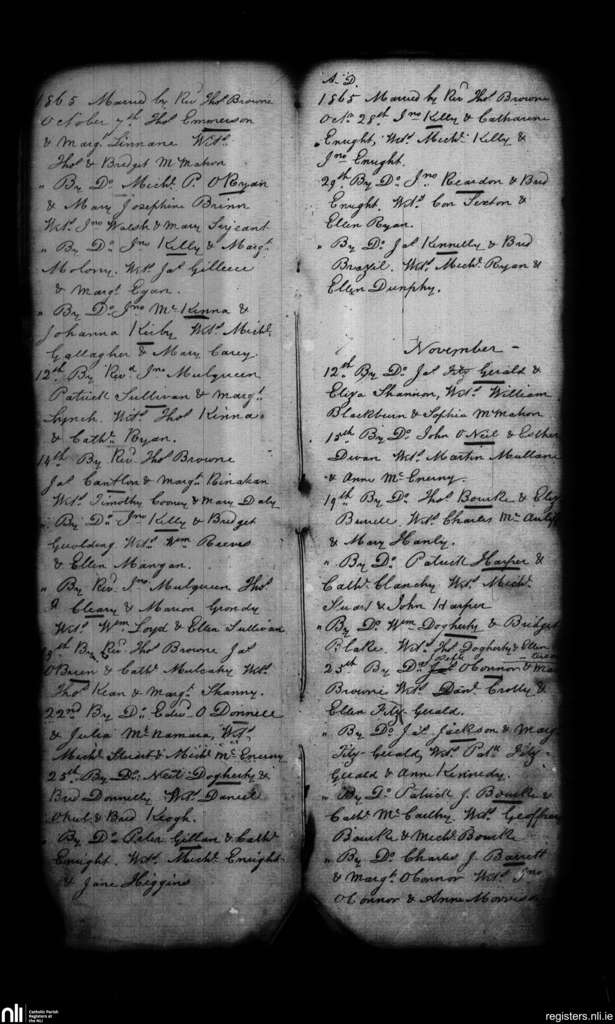 1865 Married by Revd Thos Browne
October 7th Thos Emmerson
& Margt Linnane Wits
Thos & Bridget McMahon
" By Do Michl P. O Ryan
& Mary Josephine Brinn
Wits Jno Walsh & Mary Serjeant
" By Do Jno Kelly & Margt
Molony. Wits Jas Gilleece
& Margt Egan.
" By Do Jno McKinna &
Johanna Kirby Wits Michl
Gallagher & Mary Carey
12th By Revd Jno Mulqueen
Patrick Sullivan & Margt
Lynch Wits Thos Kinna
& Cathn Ryan.
14th By Revd Thos Browne
Jas Cantlon & Margt Kinahan
Wits Timothy Cooney & Mary Daly
" By Do Jno Kelly & Bridget
Wits Wm Reeves
& Ellen Mangan.
" By Revd Jno Mulqueen Thos
Cleary & Marion Grondy
Wits Wm Loyd & Ellen Sullivan
By Revd Thos Browne Jas
OBrien & Cathn Mulcahy Wits
Thos Kean & Margt Shanny.
22nd By Do Edwd O Donnell
& Julia McNamara, Wits
Michl Stuart & Michl McEneiny
25th By Do Dogherty &
Brid Donnelly Wits Daniel
ONeil & Brid Keogh.
" By Do Peter Gillan & Cathn
Enright. Wits Michl Enright
& Jane Higgins
A.D.
1865 Married by Revd Thos Browne
Octr 28th Jno Kelly & Catharine
Enright, Wits Michl Kelly &
Jno Enright.
29th By Do Jno Reardon & Brid
Enright, Wits Con Sexton &
Ellen Ryan.
" By Do Jas Kennelly & Brid
Brazil. Wits Michl Ryan &
Ellen Dunphy.
November
12th By Do Jas Fitz Gerald &
Eliza Shannon, Wits William
Blackburn & Sophia McMahon
15th By Do John O Neil & Esther
Divan Wits Martin Mullane
& Anne McEneiny.
19th By Do Thos Bourke & Eliz
Wits Charles McAuliff
& Mary Hanly.
" By Do Patrick Harper &
Cathn Clanchy Wits Michl
Stuart & John Harper
" By Do Wm Dogherty & Bridget
Blake. Wits Thos Dogherty & Ellen
25th By Do OConnor &
Browne Wits Davd Crotty &
Ellen Fitz Gerald.
" By Do Jas Jackson & Mary
Fitz Gerald, Wits Patk Fitz
Gerald & Anne Kennedy.
" By Do Patrick J. Bourke &
Cathn McCarthy Wits Geoffrey
Bourke & Michl Bourke
" By Do Charles J. Barrett
& Margt OConnor Wits Jno
OConnor & Anne Morrison
nli
Catholic Parish
Registers at
the NLI
registers.nli.ie